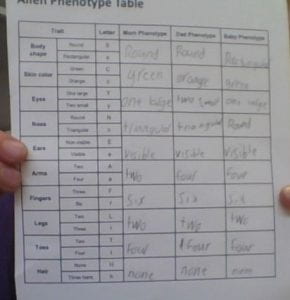 Alien Phenotype Table
Trait Letter Mom Phenotype Dad Phenotype Baby Phenotype
Body shape Round S Round Round Rectangular
Rectangular s
Skin color Green C green orange green
Orange c
Eyes One large Y one large two small one large
Two small y
Nose Round N triangular triangular Round
Triangular n
Ears Non visible E visible visible visible
Visible e
Arms Two A two four four
Four a
Fingers Three F six six six
Six f
Legs Two L two two two
Three l
Toes Two T four four four
Four t
Hair None H none none none
Three hairs h